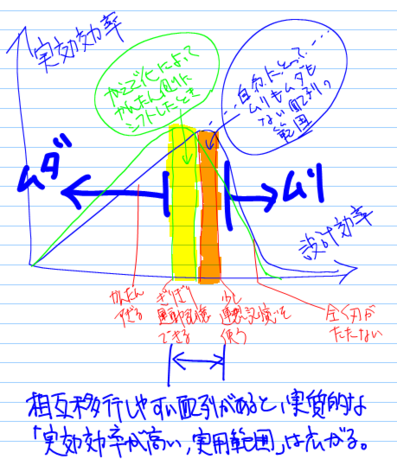 実効効率
かえで化によって
かんたん側に
シフトしたとき
自分にとって・・・
ムリもムダも
ない配列。
範囲
ムダ
ムリ
設計効率
かんたん
すぎる
ぎりぎり
運動記憶
できる
少し
連想記憶も
使う
全く刃が
たたない
相互移行しやすい配列があると、実質的な
「実効効率が高い,実用範囲」は広がる。